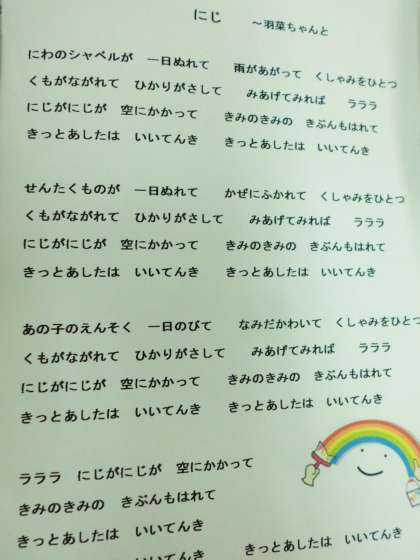 にじ　～羽菜ちゃんと
にわのシャベルが　一日ぬれて　雨があがって　くしゃみをひとつ
くもがながれて　ひかりがさして　みあげてみれば　ラララ
にじがにじが　空にかかって　きみのきみの　きぶんもはれて
きっとあしたは　いいてんき　きっとあしたは　いいてんき
せんたくものが　一日ぬれて　かぜにふかれて　くしゃみをひとつ
くもがながれて　ひかりがさして　みあげてみれば　ラララ
にじがにじが　空にかかって　きみのきみの　きぶんもはれて
きっとあしたは　いいてんき　きっとあしたは　いいてんき
あの子のえんそく　一日のびて　なみだかわいて　くしゃみをひとつ
くもがながれて　ひかりがさして　みあげてみれば　ラララ
にじがにじが　空にかかって　きみのきみの　きぶんもはれて
きっとあしたは　いいてんき　きっとあしたは　いいてんき
ラララ　にじがにじが　空にかかって
きみのきみの　きぶんもはれて
きっとあしたは　いいてんき
きっとあしたは　いいてんき　きっとあしたは　いいてんき